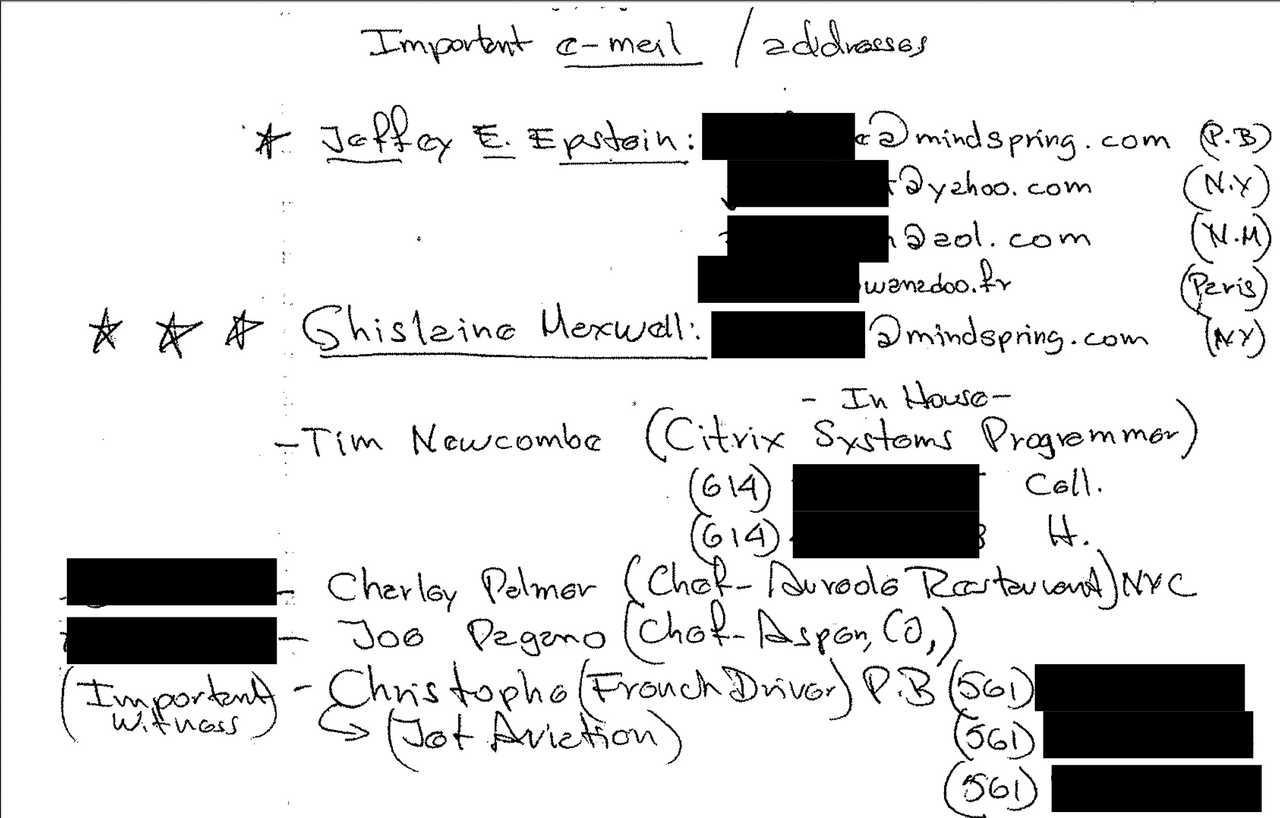 Important e-mail / addresses
Jeffey E. Epstein: @mindspring.com (P.B)
@yahoo.com (N.Y)
@aol.com (N.M)
wanadoo.fr (Paris)
Ghislaine Maxwell: @mindspring.com (NY)
- In House -
- Tim Newcombe (Citrix Systems Programmer)
(614) Cell.
(614) H.
- Charley Palmer (Chef - Aureole Restaurant) NYC
- Joe Pagano (Chef - Aspen, CO,)
(Important Witness) - Christophe (French Driver) P.B (561)
(Jet Aviation) (561)
(561)